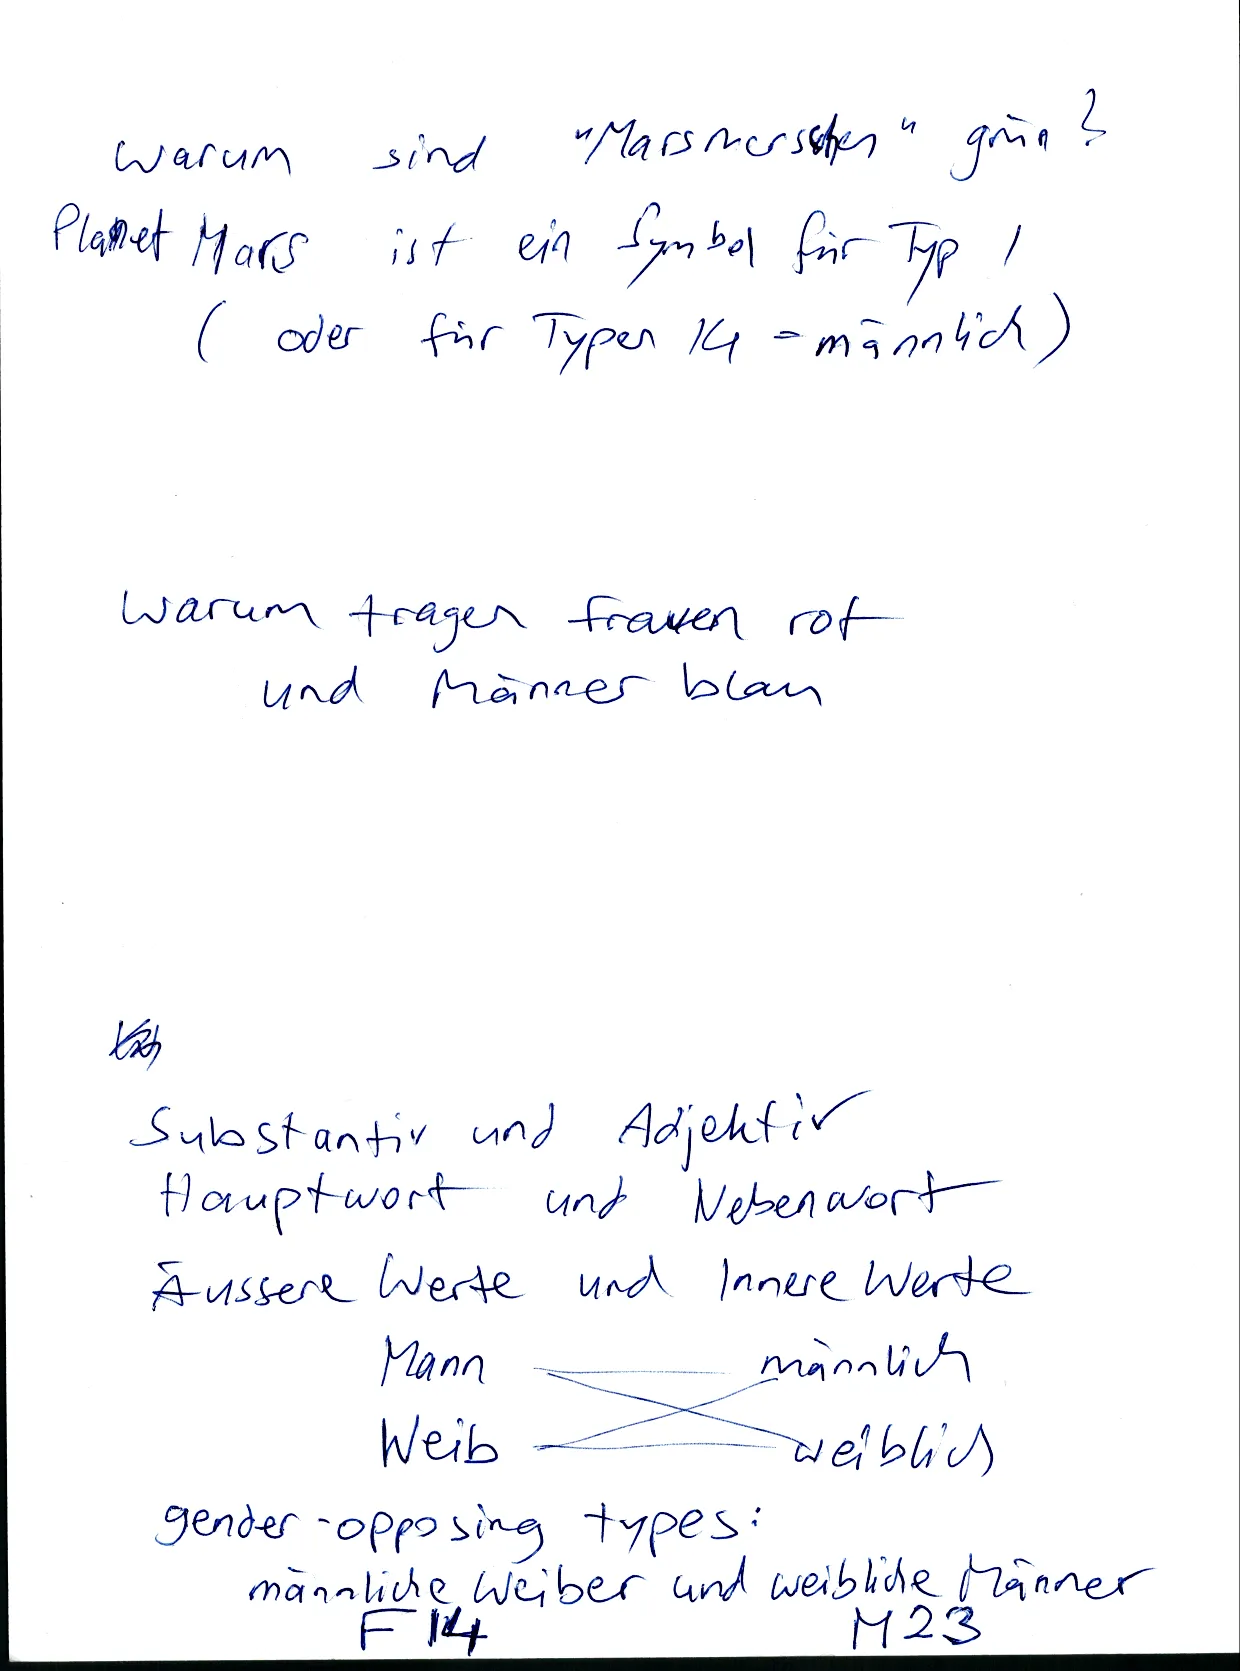 Warum sind "Marsmenschen" grün?
Planet Mars ist ein Symbol für Typ 1
( oder für Typen 14 = männlich)
Warum tragen Frauen rot
und Männer blau
Substantiv und Adjektiv
Hauptwort und Nebenwort
Äussere Werte und Innere Werte
Mann männlich
Weib weiblich
gender-opposing types:
männliche Weiber und weibliche Männer
F14 M23